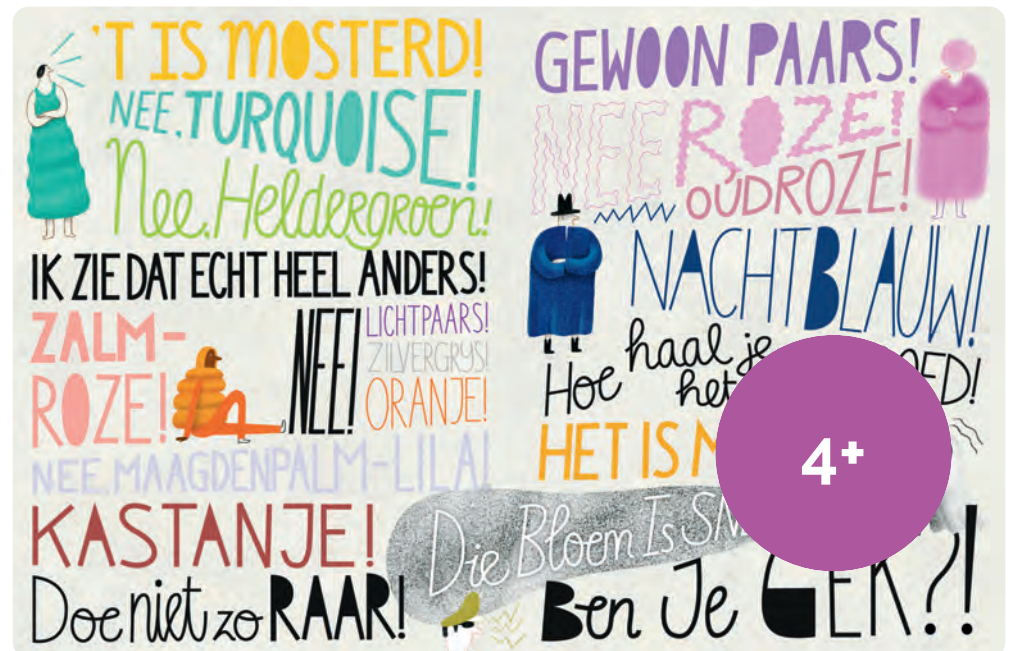 'T IS MOSTERD!
NEE, TURQUOISE!
Nee, Heldergroen!
IK ZIE DAT ECHT HEEL ANDERS!
ZALM-
ROZE!
NEE!
LICHTPAARS!
ZILVERGRYS!
ORANJE!
NEE, MAAGDENPALM-LILA!
KASTANJE!
Doe niet zo RAAR!
GEWOON PAARS!
NEE ROZE!
OUDROZE!
NACHTBLAUW!
Hoe haal je
het
HET IS
4+
Die Bloem Is
Ben Je GEK?!